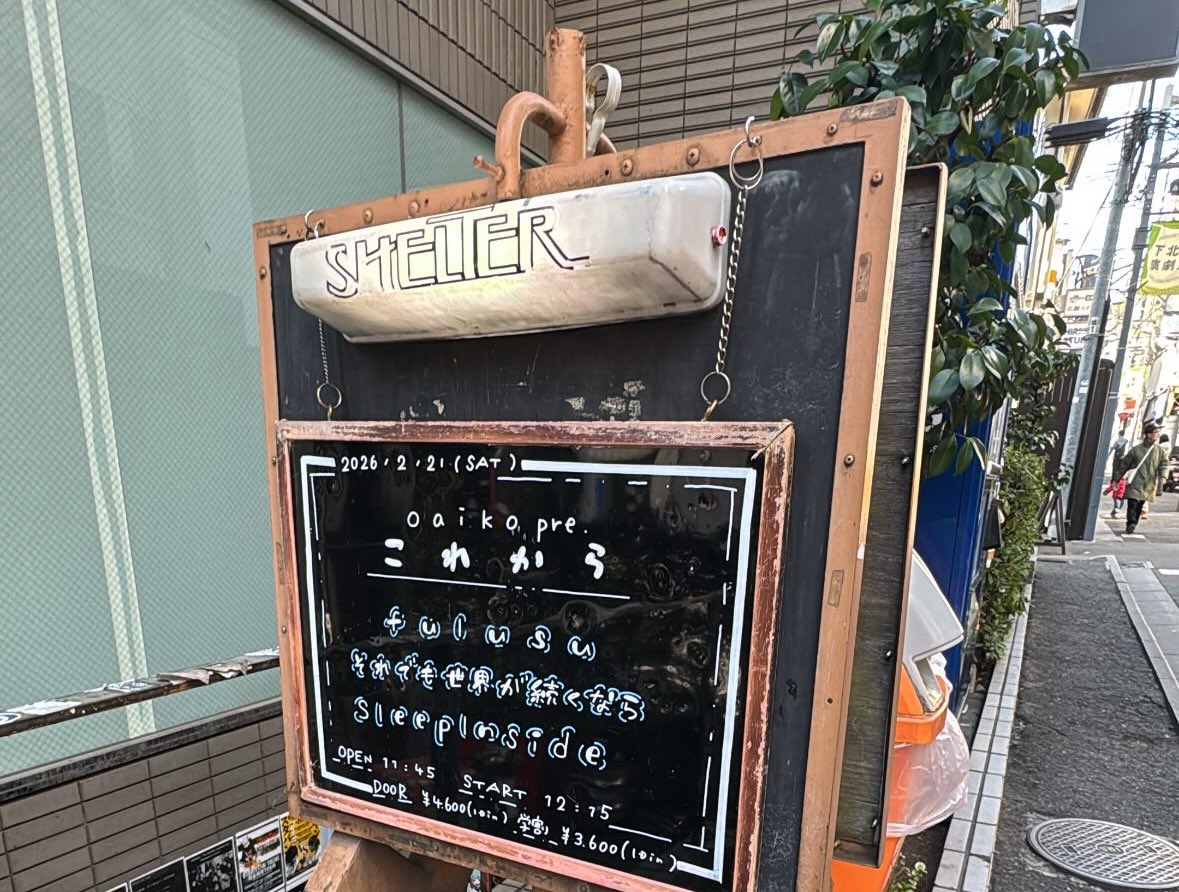 SHELTER
2026.2.21 (SAT)
oaiko pre.
これから
fulusu
それでも世界が続くなら
sleepInside
OPEN 11:45 START 12:15
DOOR ¥4.600(1Din) 学割 ¥3.600(1Din)
下北
演劇